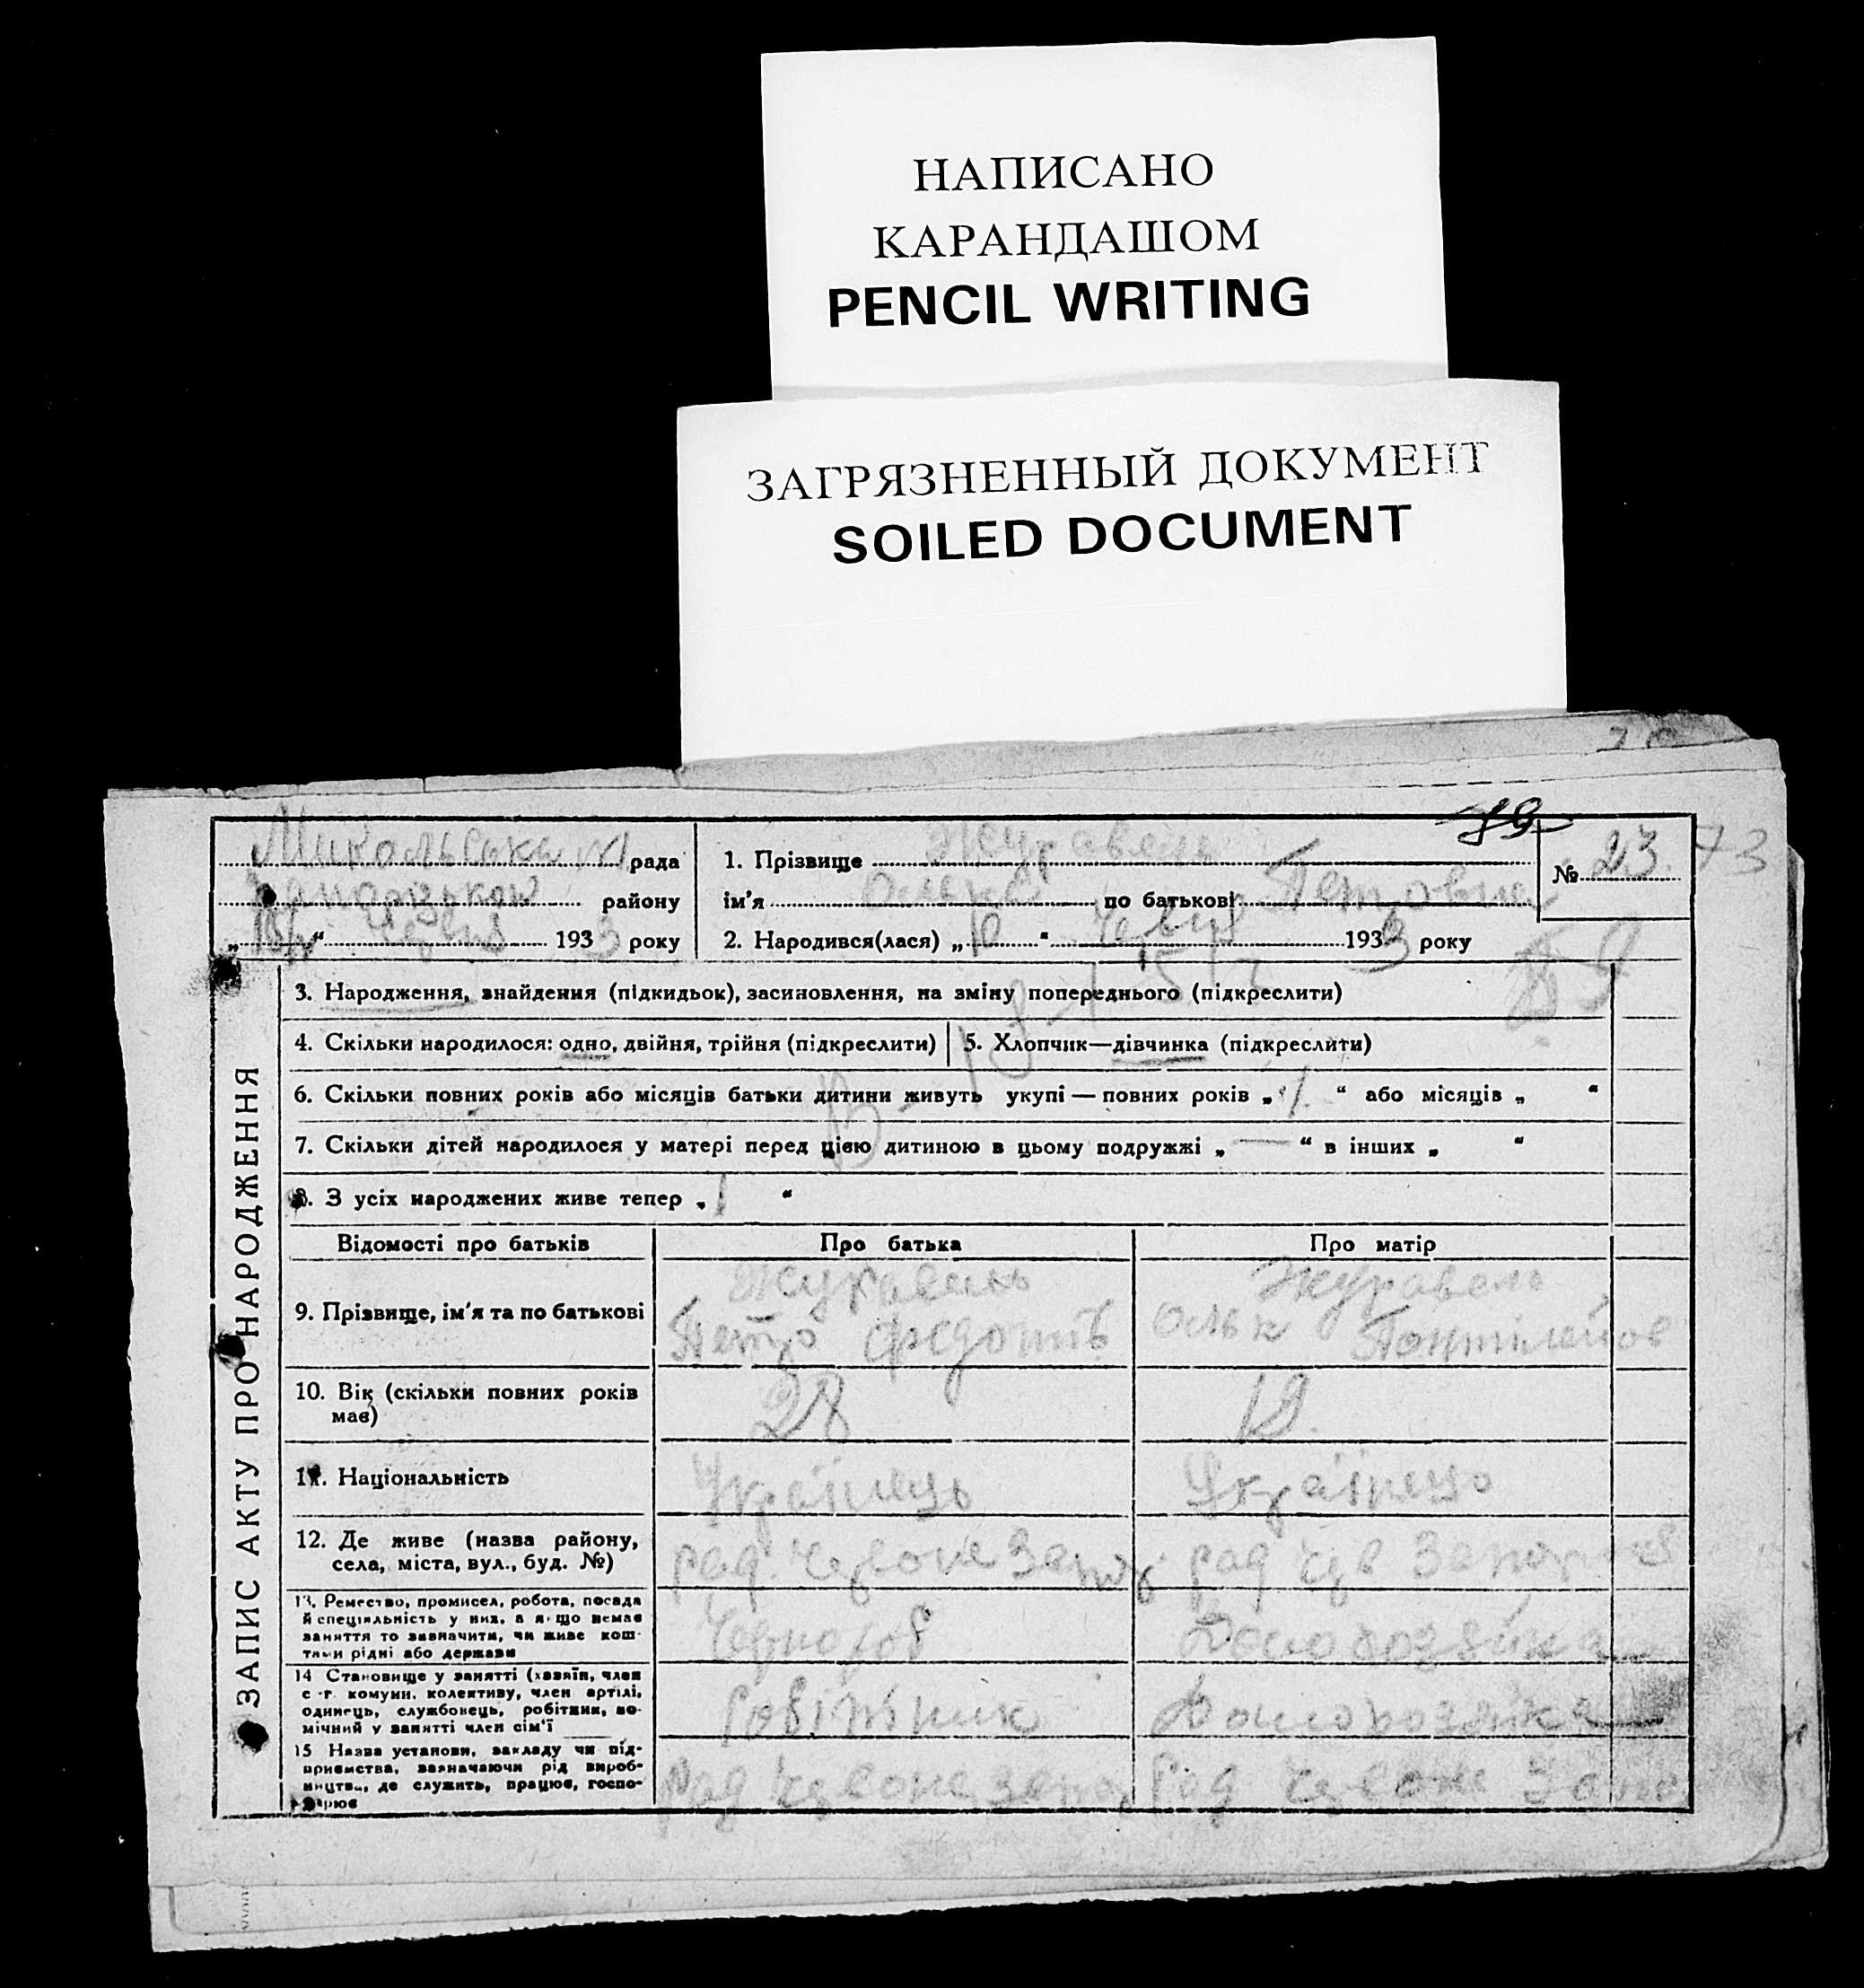 НАПИСАНО
КАРАНДАШОМ
PENCIL WRITING
ЗАГРЯЗНЕННЫЙ ДОКУМЕНТ
SOILED DOCUMENT
79
Микольська рада
району
193 3 року
1. Прізвище Журавель
ім'я по батькові Петровна
2. Народився(лася) „10“ Червня 1933 року
№ 23. 73
ЗАПИС АКТУ ПРО НАРОДЖЕННЯ
3. Народження, знайдення (підкидьок), засиновлення, на зміну попереднього (підкреслити)
4. Скільки народилося: одно, двійня, трійня (підкреслити)
5. Хлопчик—дівчинка (підкреслити)
6. Скільки повних років або місяців батьки дитини живуть укупі — повних років „1“ або місяців „ “
7. Скільки дітей народилося у матері перед цією дитиною в цьому подружжі „—“ в інших „ “
8. З усіх народжених живе тепер „1“
Відомості про батьків
Про батька
Про матір
9. Прізвище, ім'я та по батькові
Журавель
Петро Федотів
Журавель
10. Вік (скільки повних років
має)
28
19.
11. Національність
Українець
Українець
12. Де живе (назва району,
села, міста, вул., буд. №)
рад. Червоне Запор
рад Чер Запор
13. Ремество, промисел, робота, посада
й спеціяльність у них, а якщо немає
заняття то зазначити, чи живе кош-
тами рідні або держави
Чорнороб
Домохозяйка
14 Становище у занятті (хазяїн, член
с.-г. комуни, колективу, член артілі,
одинець, службовець, робітник, по-
мічний у занятті член сім'ї
Робітник
Домохозяйка
15 Назва установи, закладу чи під-
приємства, зазначаючи рід вироб-
ництва, де служить, працює, госпо-
дарює
Рад Червоне Запор
Рад Червоне Запо